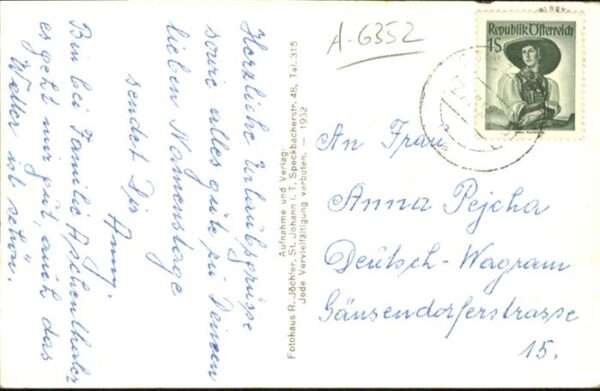 Herzliche Urlaubsgrüsse
sowie alles gute zu Deinem
lieben Namenstage
sendet Dir
Anny.
Bin bei Familie Aschenthaler
es geht mir gut auch das
Wetter ist schön.
Aufnahme und Verlag:
Fotohaus R. Jöchler, St. Johann i. T., Speckbacherstr. 48, Tel. 315
Jede Vervielfältigung verboten. — 1932
A-6352
Republik Österreich
1S
An Frau
Anna Pejcha
Deutsch-Wagram
Gänsendorferstrasse
15.